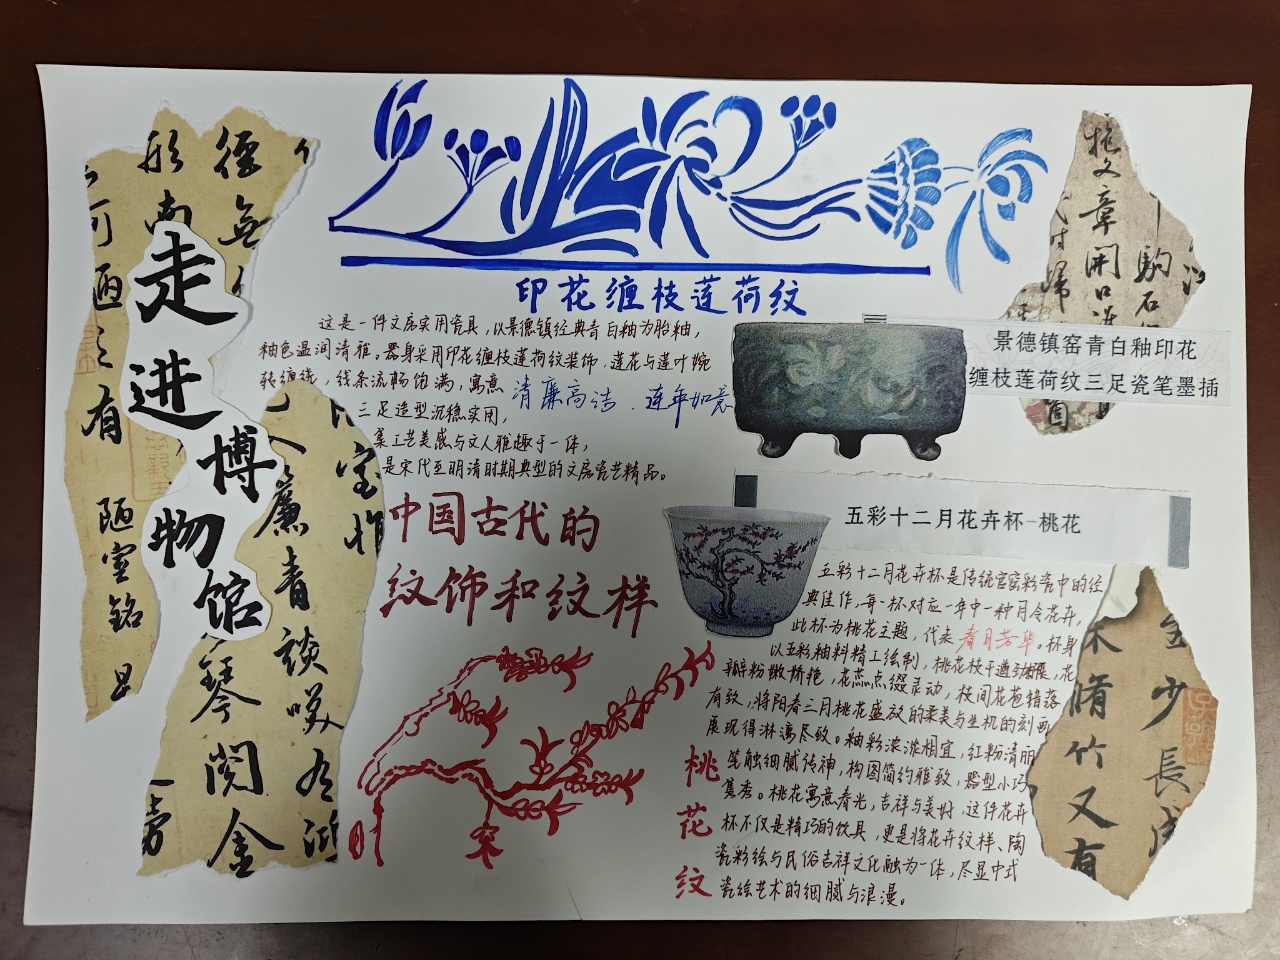 走
进
博
物
馆
形
径
南
无
何
陋
之
有
陋
室
铭
廉
青
谈
琴
阅
金
印花缠枝莲荷纹
这是一件文房实用瓷具，以景德镇经典青白釉为胎釉，
釉色温润清雅。器身采用印花缠枝莲荷纹装饰，莲花与莲叶婉
转缠绕，线条流畅饱满，寓意清廉高洁、连年如意
三足造型沉稳实用，
集工艺美感与文人雅趣于一体，
是宋代至明清时期典型的文房瓷艺精品。
景德镇窑青白釉印花
缠枝莲荷纹三足瓷笔墨插
文章開口
駒石
中国古代的
纹饰和纹样
五彩十二月花卉杯-桃花
五彩十二月花卉杯是传统官窑彩瓷中的经
典佳作，每一杯对应一年中一种月令花卉，
此杯为桃花主题，代表春月芳华。杯身
以五彩釉料精工绘制，桃花枝干遒劲舒展，花
瓣粉嫩娇艳，花蕊点缀灵动，枝间花苞错落
有致，将阳春三月桃花盛放的柔美与生机的刻画
展现得淋漓尽致。釉彩浓淡相宜，红粉清丽
笔触细腻传神，构图简约雅致，器型小巧
隽秀。桃花寓意春光，吉祥与美好，这件花卉
杯不仅是精巧的饮具，更是将花卉纹样、陶
瓷彩绘与民俗吉祥文化融为一体，尽显中式
瓷绘艺术的细腻与浪漫。
桃
花
纹
脩竹又有
少長咸